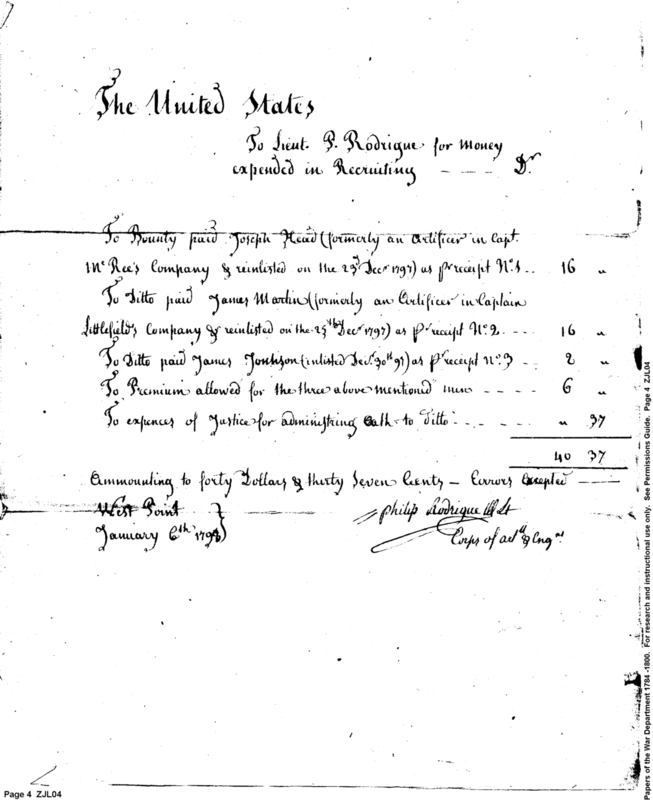 The United States
To Lieut. P. Rodrigue for Money
expended in Recruiting - - - - Dr.
To Bounty paid Joseph Head (formerly an Artificer in Capt.
Mc Ree's Company & reinlisted on the 23d Decr 1797) as pr receipt No. 1 .. 16 "
To Ditto paid James Martin (formerly an Artificer in Captain
Littlefield's Company & reinlisted on the 25th Decr 1797) as pr receipt No. 2. - - - 16 "
To Ditto paid James Jonhson (inlisted Decr 30th 97) as pr receipt No. 3 - - 2 "
To Premium allowed for the three above mentioned men - - - - 6 "
To expences of Justice for administring Oath to Ditto - - - - " 37
40 37
Ammounting to forty Dollars & thirty Seven Cents - Errors Excepted
West Point
January 6th 1798
Philip Rodrigue Lt
Corps of arts & Engrs
Page 4 ZJL04
Papers of the War Department 1784 -1800. For research and instructional use only. See Permissions Guide. Page 4 ZJL04